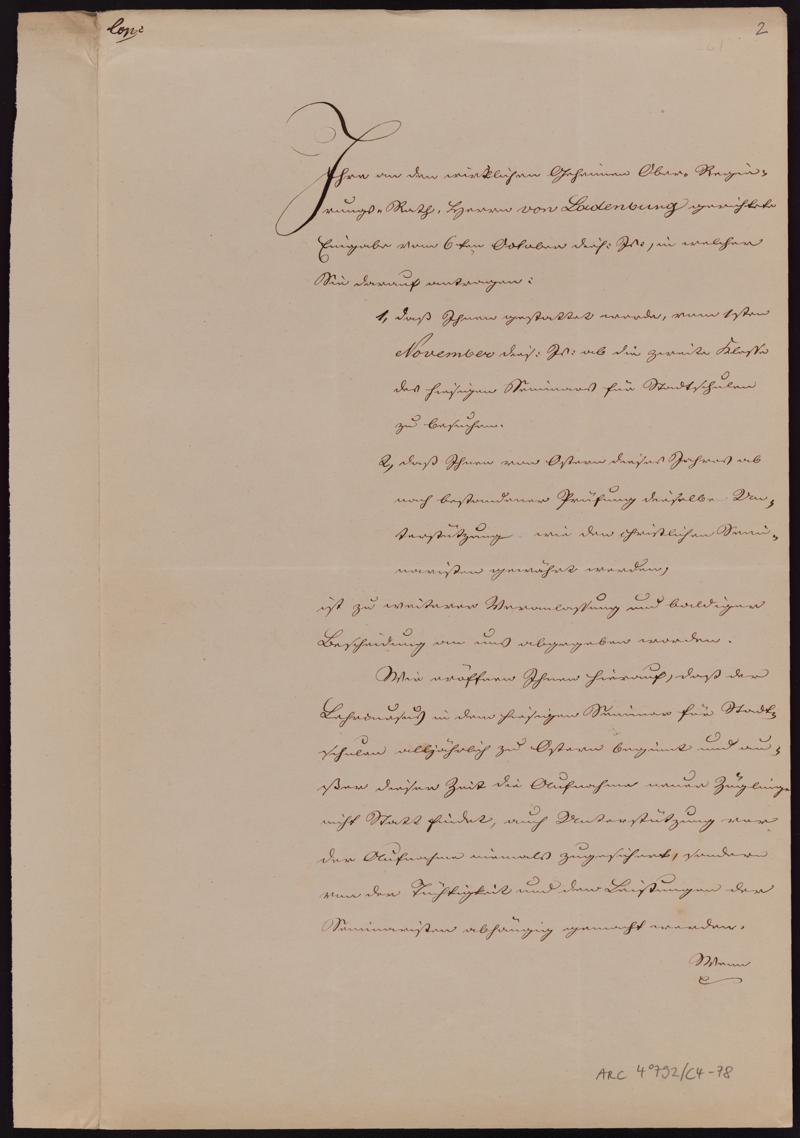 Cop:
2
Ihre an den wirklichen Geheimen Ober-Regie-
rungs-Rath, Herrn von Ladenburg gerichtete
Eingabe vom 6ten October dies: Js:, in welcher
Sie darauf antragen:
1, daß Ihnen gestattet werde, vom 1sten
November dies: Js: ab die zweite Klasse
des hiesigen Seminars für Stadtschulen
zu besuchen.
2, daß Ihnen von Ostern dieses Jahres ab
nach bestandener Prüfung dieselbe Un-
terstützung wie den christlichen Semi-
naristen gewährt werden,
ist zu weiterer Veranlassung und baldiger
Bescheidung an uns abgegeben worden.
Wir eröffnen Ihnen hierauf, daß der
Lehrcursus in dem hiesigen Seminar für Stadt-
schulen alljährlich zu Ostern beginnt und au-
ßer dieser Zeit die Aufnahme neuer Zöglinge
nicht Statt findet, auch Unterstützung vor
der Aufnahme niemals zugesichert, sondern
von der Tüchtigkeit und den Leistungen der
Seminaristen abhängig gemacht werden.
Wenn
ARC 4°792/C4-78